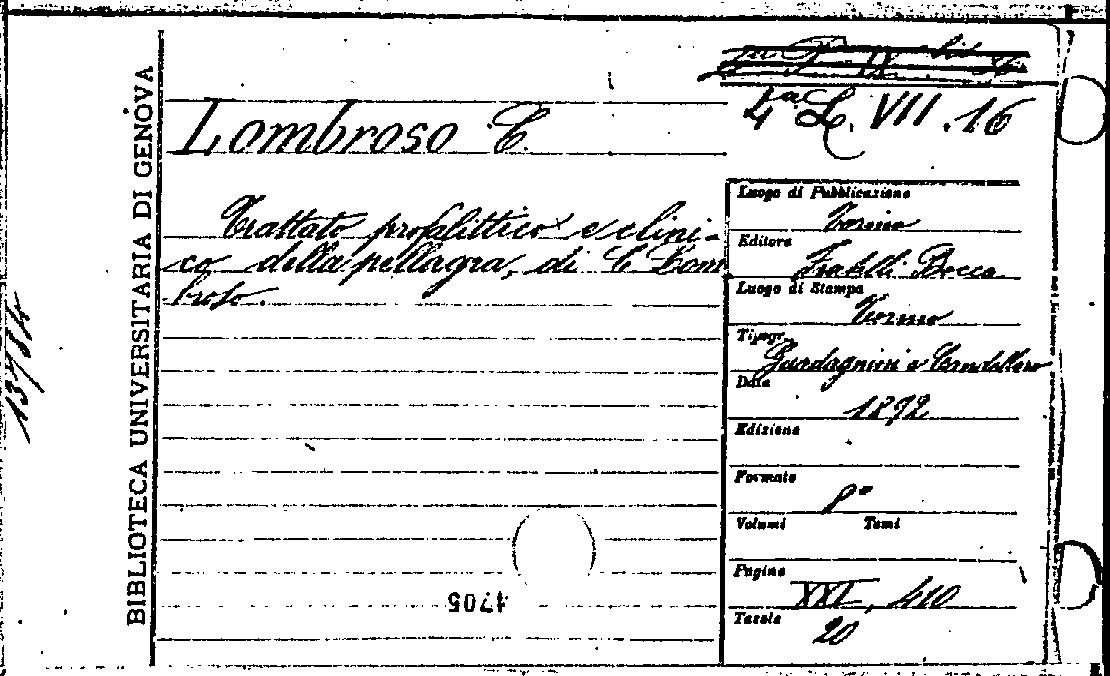 BIBLIOTECA UNIVERSITARIA DI GENOVA
4ª L. VII. 16
Lombroso C.
Trattato profilittico e clini-
co della pellagra, di C Lom
broso.
Luogo di Pubblicazione
Torino
Editore
Fratelli Bocca
Luogo di Stampa
Torino
Tipogr.
Guadagnini e Candellero
Data
1892
Edizione
Formato
8°
Volumi Tomi
Pagine
XXI, 410
Tavole
20
4705